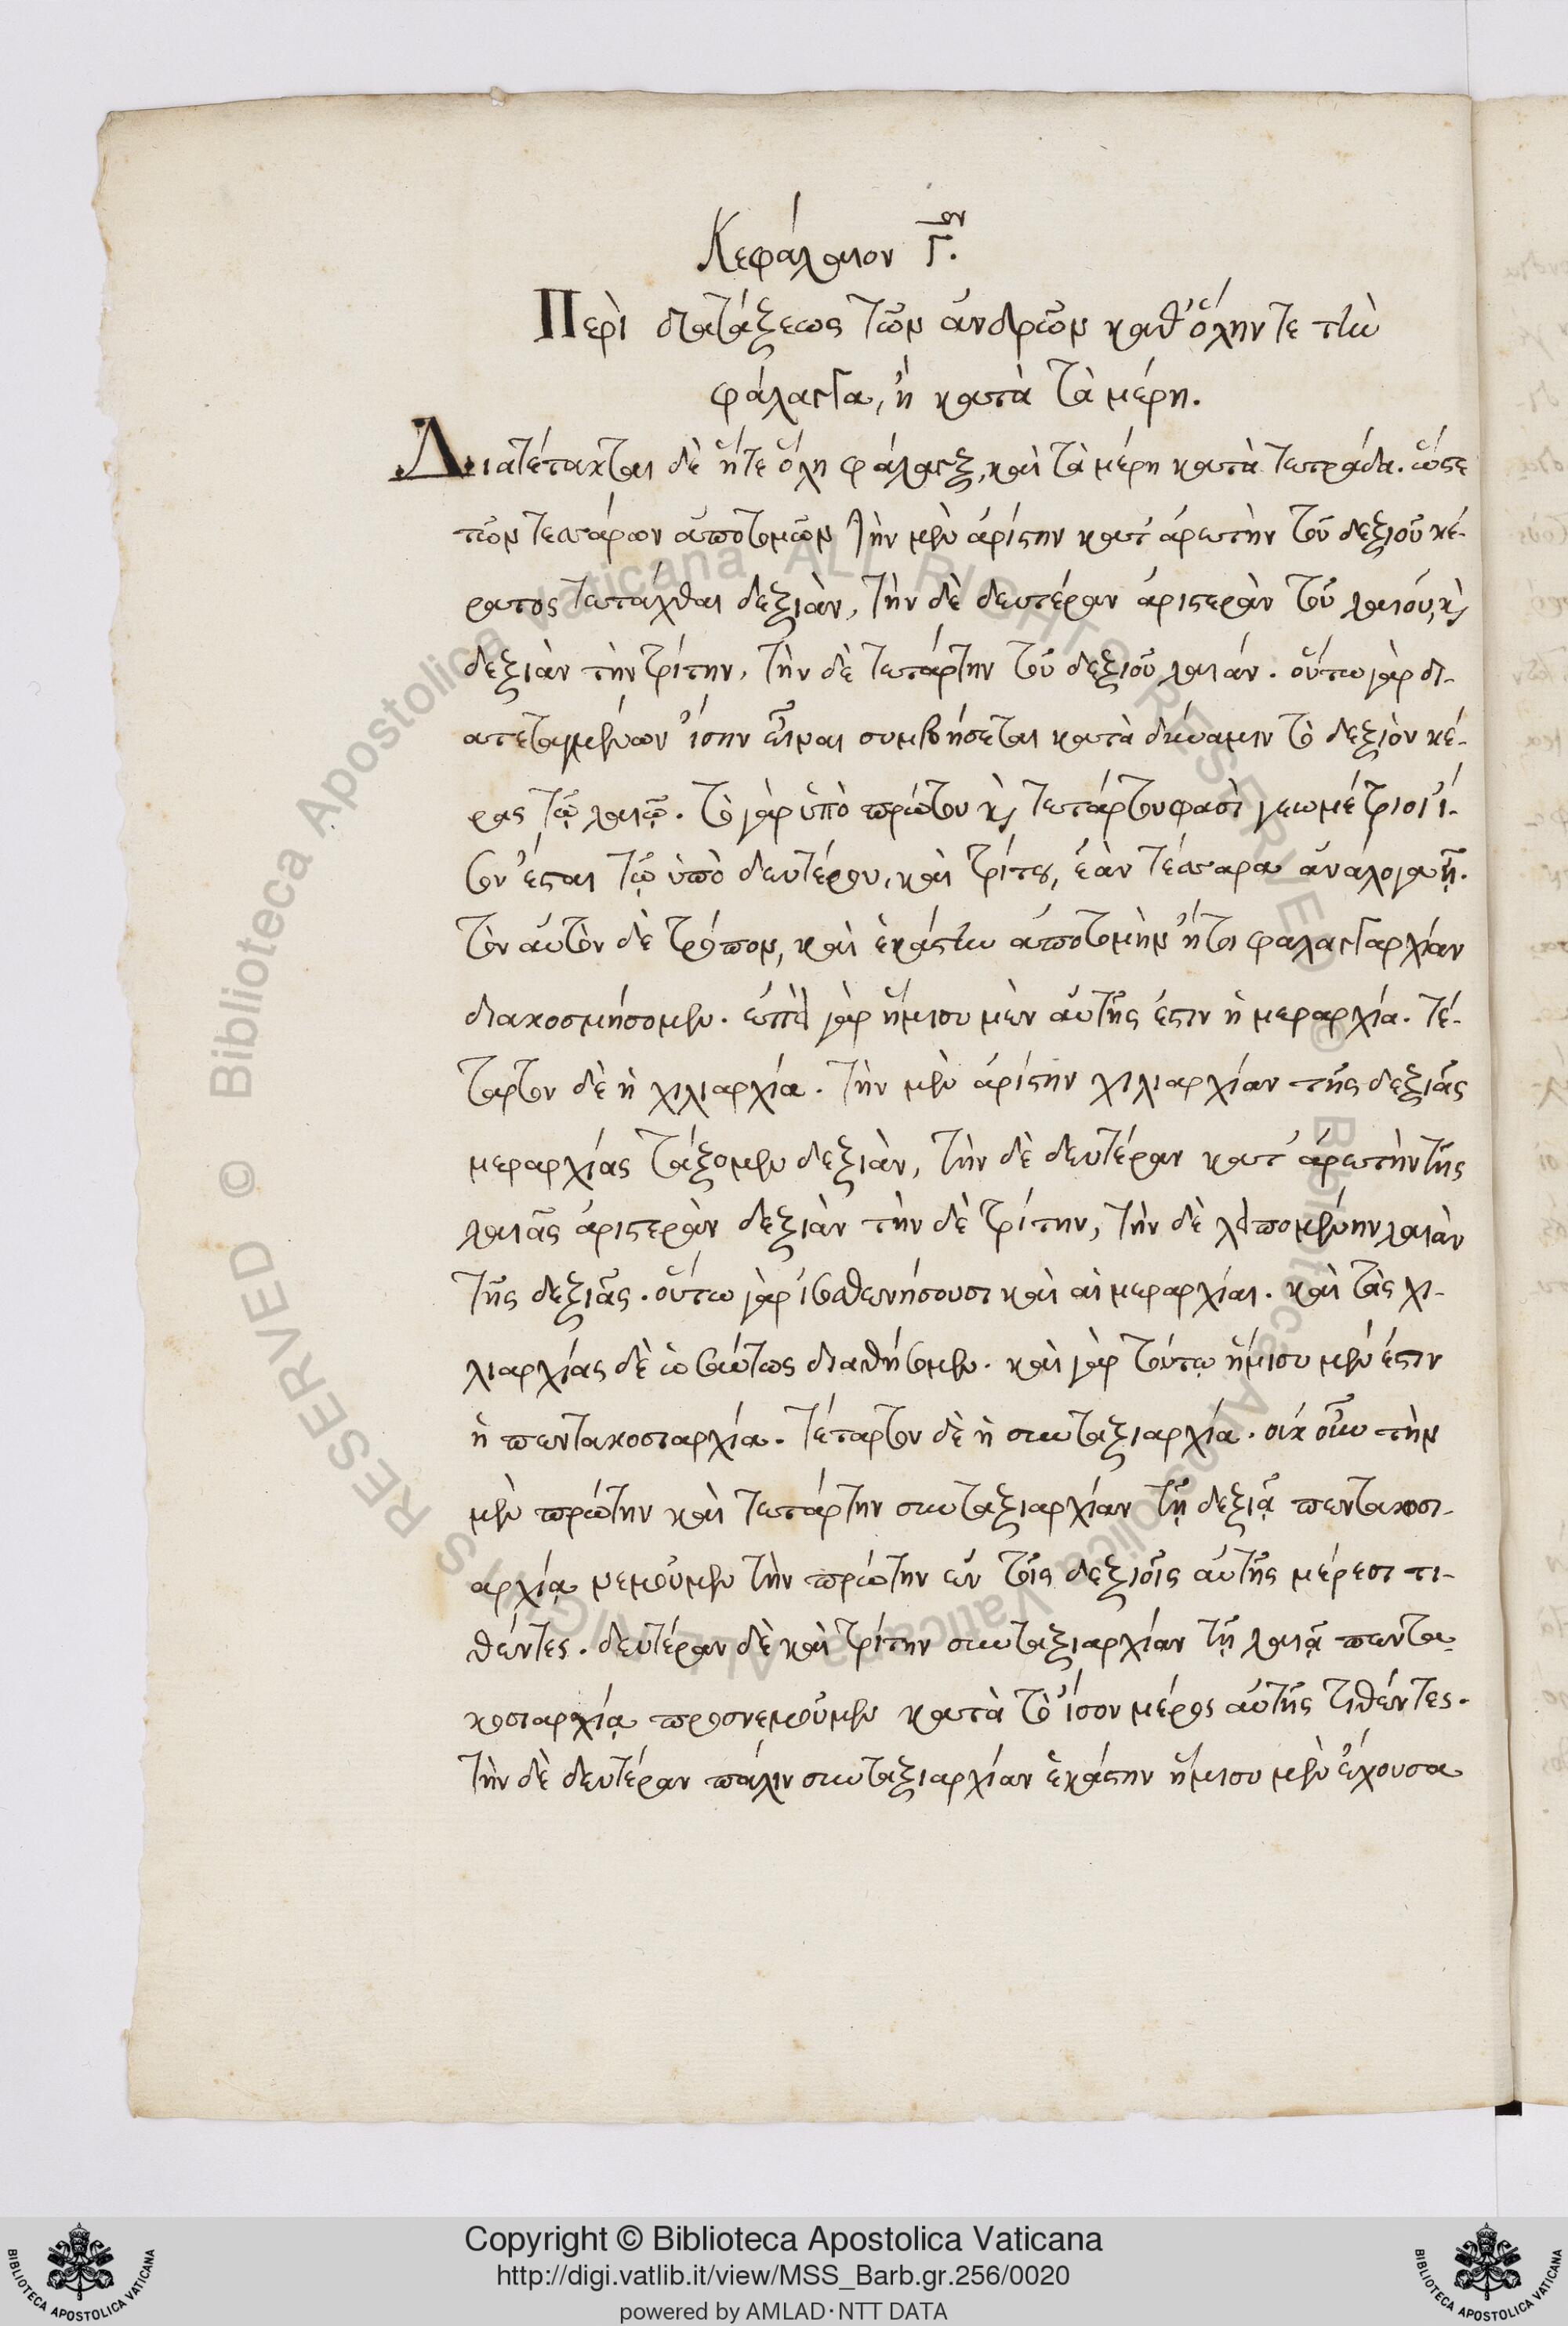 Κεφάλαιον Γ̅ον.
Περὶ διατάξεως τῶν ἀνδρῶν καθ' ὅλην τε τὴν
φάλαγγα, ἢ κατὰ τὰ μέρη.
Διατέτακται δὲ ἥτε ὅλη φάλαγξ, καὶ τὰ μέρη κατὰ τετράδα. ὥστε
τῶν τεσσάρων ἀποτομῶν τὴν μὲν ἀρίστην κατ' ἀρετὴν τοῦ δεξιοῦ κέ-
ρατος τετάχθαι δεξιὰν, τὴν δὲ δευτέραν ἀριστερὰν τοῦ λαιοῦ, καὶ
δεξιὰν τὴν τρίτην, τὴν δὲ τετάρτην τοῦ δεξιοῦ λαιάν. οὕτω γὰρ δι-
ατεταγμένων ἴσην εἶναι συμβήσεται κατὰ δύναμιν τὸ δεξιὸν κέ-
ρας τῷ λαιῷ. τὸ γὰρ ὑπὸ πρώτου καὶ τετάρτου φασὶ γεωμέτριοι ἴ-
σον ἔσται τῷ ὑπὸ δευτέρου, καὶ τρίτου, ἐὰν τέσσαρα ἀνάλογα ᾖ.
τὸν αὐτὸν δὲ τρόπον, καὶ ἑκάστην ἀποτομὴν ἤτοι φαλαγγαρχίαν
διακοσμήσομεν. ἐπεὶ γὰρ ἥμισυ μὲν αὐτῆς ἐστιν ἡ μεραρχία. τέ-
ταρτον δὲ ἡ χιλιαρχία. τὴν μὲν ἀρίστην χιλιαρχίαν τῆς δεξιᾶς
μεραρχίας τάξομεν δεξιὰν, τὴν δὲ δευτέραν κατ' ἀρετὴν τῆς
λαιᾶς ἀριστερὰν δεξιὰν τὴν δὲ τρίτην, τὴν δὲ λειπομένην λαιὰν
τῆς δεξιᾶς. οὕτω γὰρ ἰσοσθενήσουσι καὶ αἱ μεραρχίαι. καὶ τὰς χι-
λιαρχίας δὲ ὡσαύτως διαθήσομεν. καὶ γὰρ τούτῳ ἥμισυ μὲν ἐστιν
ἡ πεντακοσιαρχία. τέταρτον δὲ ἡ συνταξιαρχία. οὐκ οὖν τὴν
μὲν πρώτην καὶ τετάρτην συνταξιαρχίαν τῇ δεξιᾷ πεντακοσι-
αρχίᾳ νεμοῦμεν τὴν πρώτην ἐν τοῖς δεξιοῖς αὐτῆς μέρεσι τι-
θέντες. δευτέραν δὲ καὶ τρίτην συνταξιαρχίαν τῇ λαιᾷ πεντα-
κοσιαρχίᾳ προσνεμοῦμεν κατὰ τὸ ἴσον μέρος αὐτῆς τιθέντες.
τὴν δὲ δευτέραν πάλιν συνταξιαρχίαν ἑκάστην ἥμισυ μὲν ἔχουσα
Copyright © Biblioteca Apostolica Vaticana
http://digi.vatlib.it/view/MSS_Barb.gr.256/0020
powered by AMLAD·NTT DATA
BIBLIOTECA APOSTOLICA VATICANA
BIBLIOTECA APOSTOLICA VATICANA
© Biblioteca Apostolica Vaticana ALL RIGHTS RESERVED © Biblioteca Apostolica Vaticana ALL RIGHTS RESERVED